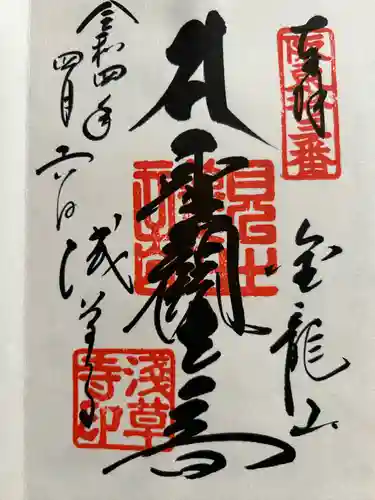 奉拝
坂東十三番
金龍山
聖観世音
浅草寺
令和四年
四月二六日
淺草寺印